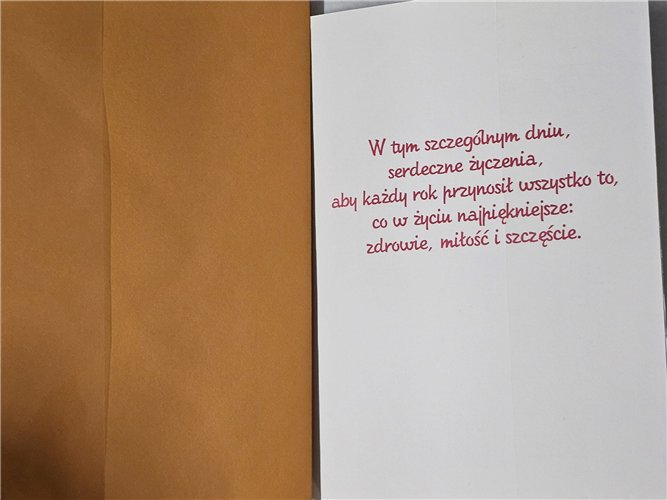 W tym szczególnym dniu,
serdeczne życzenia,
aby każdy rok przynosił wszystko to,
co w życiu najpiękniejsze:
zdrowie, miłość i szczęście.